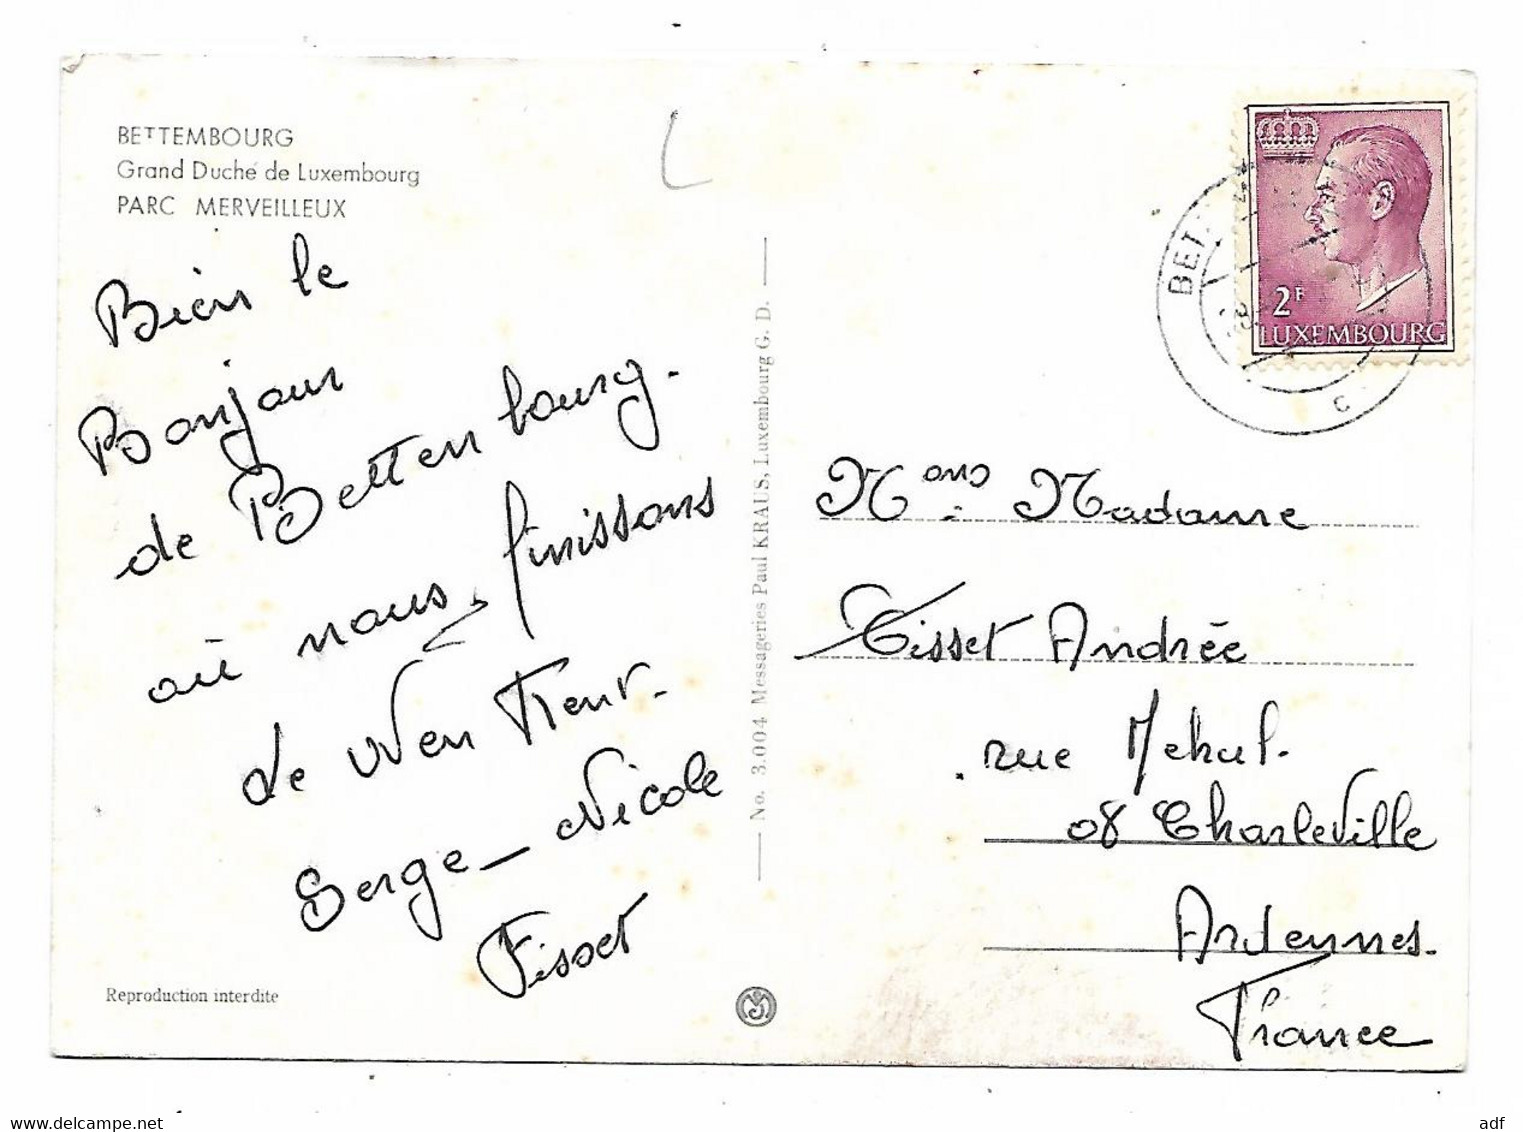 BETTEMBOURG
Grand Duché de Luxembourg
PARC MERVEILLEUX
Bien le
Bonjour
de Bettenbourg.
où nous finissons
le Wen Kent.
Serge_Nicole
Fisset
Reproduction interdite
No. 3.004 Messageries Paul KRAUS, Luxembourg G. D.
2F
LUXEMBOURG
BET
C
Madame
Fisset Andrée
rue Mehul.
08 Charleville
Ardennes.
France
delcampe.net
adf